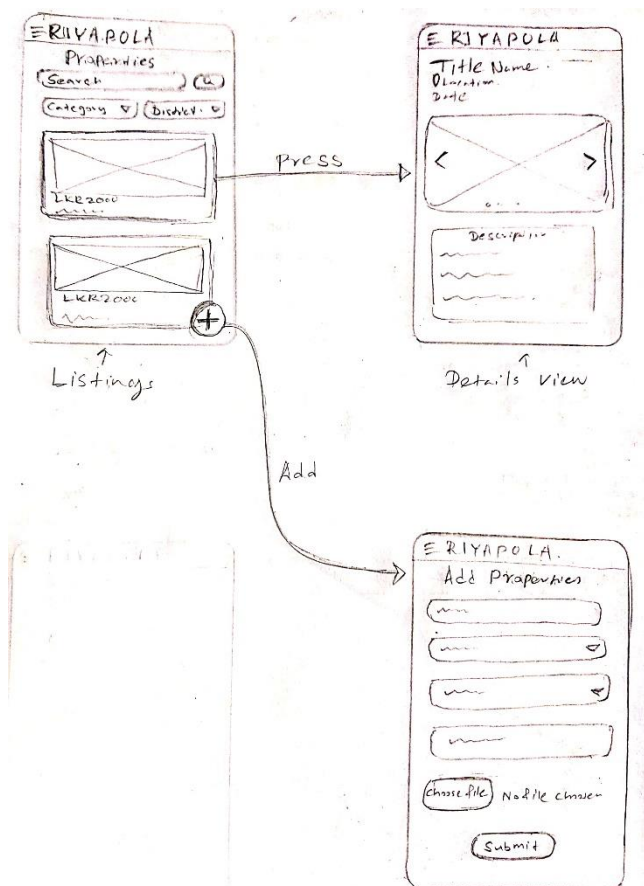 RIYAPOLA
Properties
Search
Category
District
LKR2000
LKR2000
Listings
Press
RIYAPOLA
Title Name
Location
Date
Description
Details view
Add
RIYAPOLA
Add Properties
Choose file No file chosen
Submit